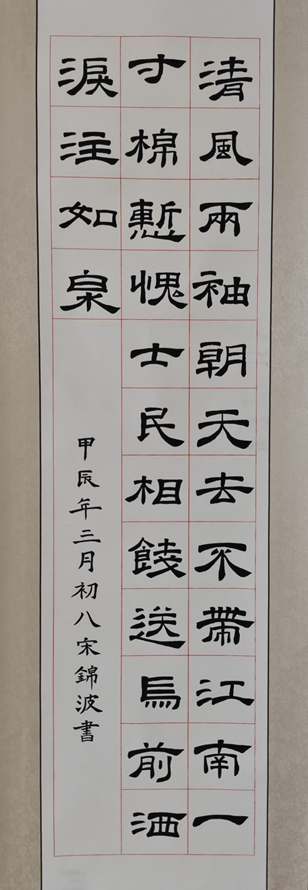 清風兩袖朝天去不帶江南一
寸棉慙愧士民相餞送馬前洒
淚注如泉
甲辰年三月初八宋錦波書